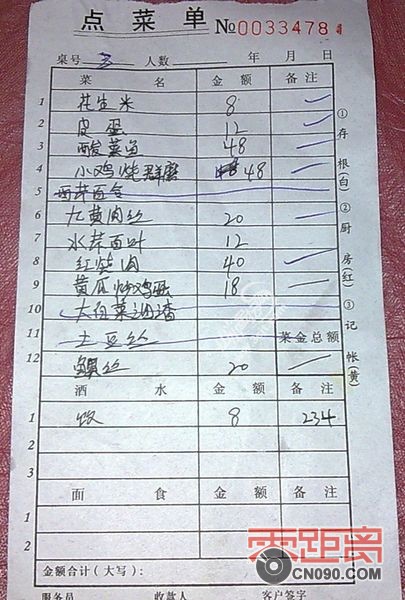 点菜单 No 0033478
桌号 3 人数 年 月 日
菜名 金额 备注
1 花生米 8
2 皮蛋 12
3 酸菜鱼 48
4 小鸡炖群磨 48 48
5 西芹百合
6 九黄肉丝 20
7 水芹百叶 12
8 红烧肉 40
9 黄瓜炒鸡蛋 18
10 大白菜油渣
11 土豆丝 菜金总额
12 鳝丝 20
酒水 金额 备注
1 饭 8 234
2
3
面食 金额 备注
1
2
金额合计(大写):
服务员 收款人 客户签字
①存根(白)②厨房(红)③记帐(黄)
零距离
CN090.COM